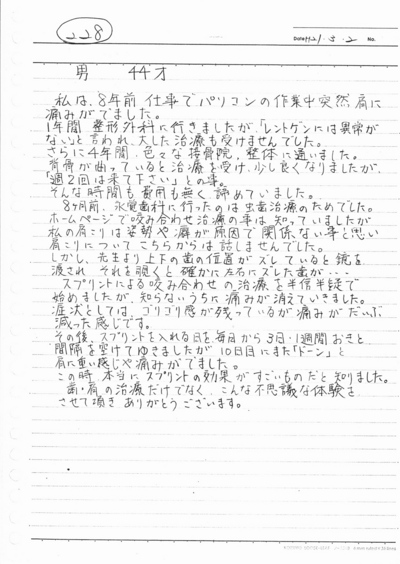 228
Date H21・5・2 No.
男 44才
私は、8年前 仕事でパソコンの作業中突然肩に
痛みがでました。
1年間 整形外科に行きましたが、「レントゲンには異常が
ない」と言われ、大した治療も受けませんでした。
さらに4年間、色々な接骨院、整体に通いました。
背骨が曲っていると治療を受け、少し良くなりましたが、
「週2回は来て下さい」との事。
そんな時間も費用も無く諦めていました。
8ヶ月前、永電歯科に行ったのは虫歯治療のためでした。
ホームページで咬み合わせ治療の事は知っていましたが
私の肩こりは姿勢や癖が原因で関係ない事と思い
肩こりについてこちらからは話しませんでした。
しかし、先生より上下の歯の位置がズレていると鏡を
渡され それを覗くと確かに左右にズレた歯が・・・
スプリントによる咬み合わせの治療を半信半疑で
始めましたが、知らないうちに痛みが消えていきました。
症状としては、ゴリゴリ感が残っているが痛みがだいぶ
減った感じです。
その後、スプリントを入れる日を毎日から3日・1週間おきと
間隔を空けてゆきましたが 10日目にまた「ドーン」と
肩に重い感じや痛みがでました。
この時 本当にスプリントの効果がすごいものだと知りました。
歯・肩の治療だけでなく、こんな不思議な体験を
させて頂き ありがとうございます。